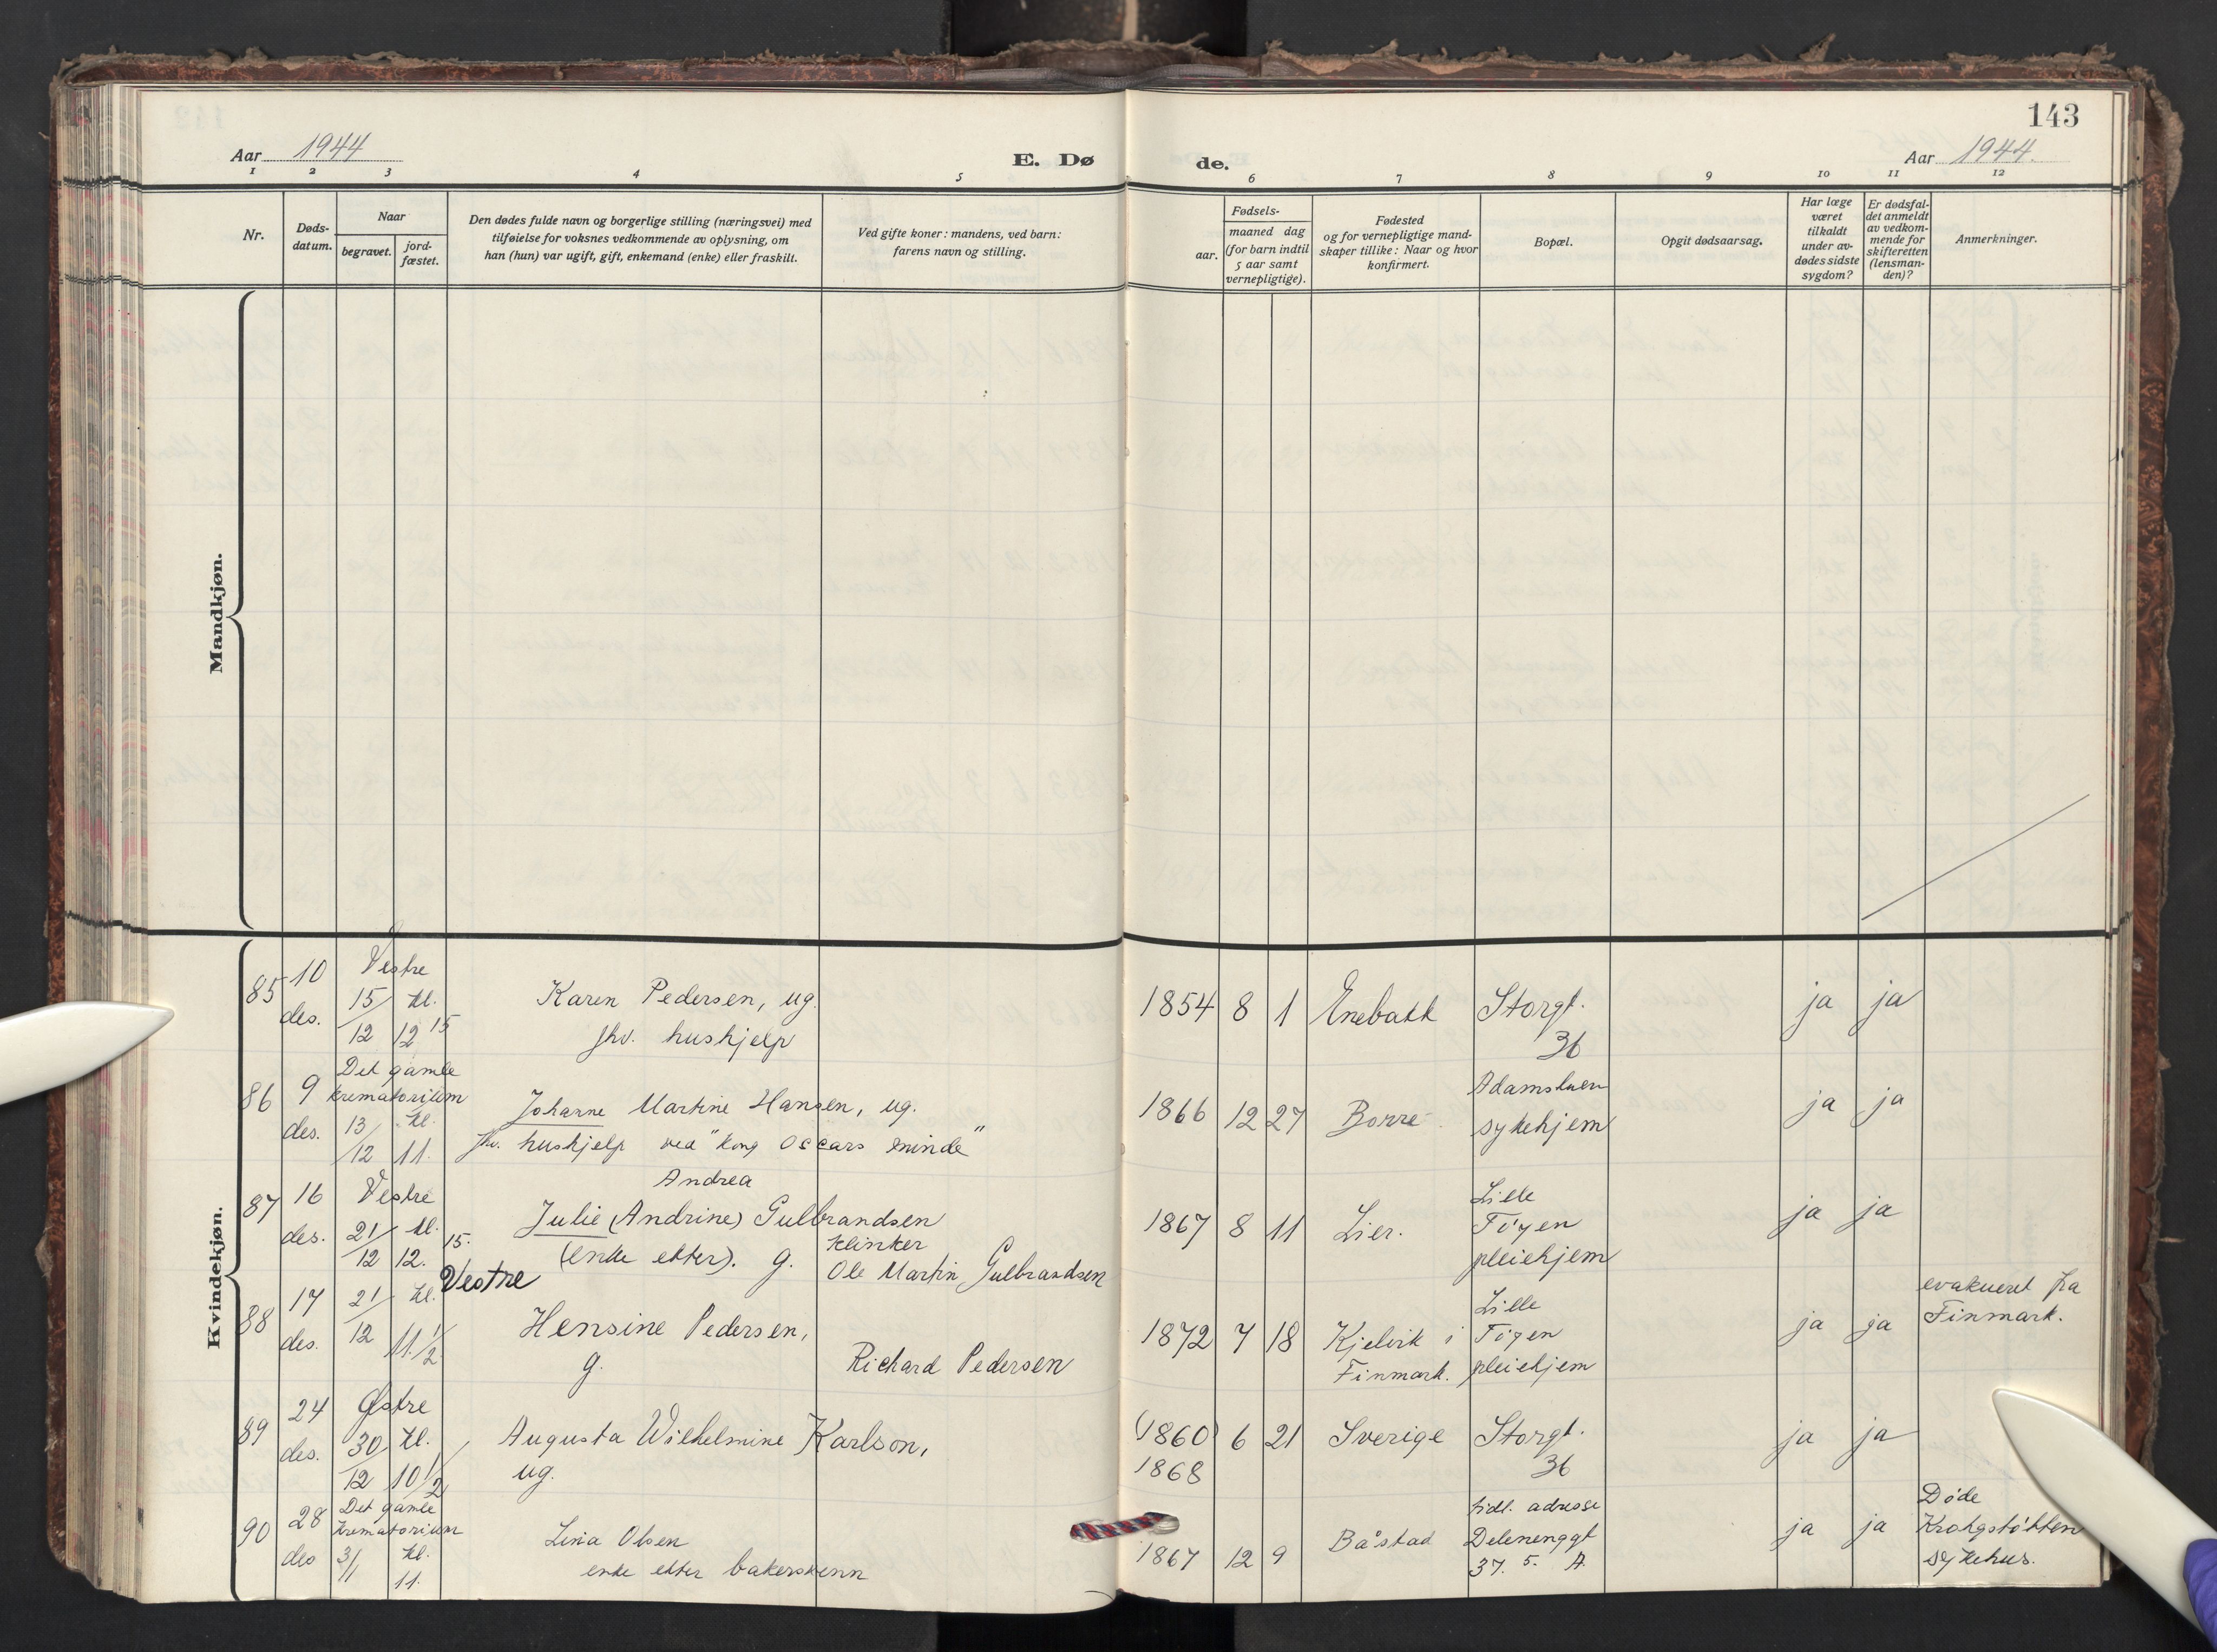 143
Aar 1944
E. Dø de.
Aar 1944.
1 2 3 4 5 6 7 8 9 10 11 12
Nr.
Døds-
datum.
Naar
begravet.
jord-
fæstet.
Den dødes fulde navn og borgerlige stilling (næringsvei) med
tilføielse for voksnes vedkommende av oplysning, om
han (hun) var ugift, gift, enkemand (enke) eller fraskilt.
Ved gifte koner: mandens, ved barn:
farens navn og stilling.
Fødsels-
aar.
maaned dag
(for barn indtil
5 aar samt
vernepligtige).
Fødested
og for vernepligtige mand-
skaper tillike: Naar og hvor
konfirmert.
Bopæl.
Opgit dødsaarsag.
Har læge
været
tilkaldt
under av-
dødes sidste
sygdom?
Er dødsfal-
det anmeldt
av vedkom-
mende for
skifteretten
(lensman-
den)?
Anmerkninger.
Mandkjøn.
Kvindekjøn.
85 10 des.
Vestre
15/12 kl. 12 15
Karen Pedersen, ug.
fhv. hushjelp
1854 8 1 Enebakk
Storgt.
36
ja ja
86 9 des.
Det gamle
krematorium
13/12 kl. 11.
Johanne Martine Hansen, ug.
fhv. hushjelp ved "Kong Oscars minde"
1866 12 27 Borre
Adamstuen
sykehjem
ja ja
87 16 des.
Vestre
21/12 kl. 12. 15.
Andrea
Julie (Andrine) Gulbrandsen
(enke etter). g.
klinker
Ole Martin Gulbrandsen
1867 8 11 Lier.
Lille
Tøyen
pleiehjem
ja ja
88 17 des.
Vestre
21/12 kl. 11 1/2
Hensine Pedersen,
g.
Richard Pedersen
1872 7 18 Kjelvik i
Finmark.
Lille
Tøyen
pleiehjem
ja ja
evakuert fra
Finmark.
89 24 des.
Østre
30/12 kl. 10 1/2
Augusta Wilhelmine Karlson,
ug.
(1860) 6 21 Sverige
1868
Storgt.
36
ja ja
90 28 des
Det gamle
krematorium
3/1 kl. 11.
Lina Olsen
enke etter bakersvenn
1867 12 9 Båstad
tidl. adresse
Delenenggt
37. 5. A.
ja ja
Døde
Krohgstøtten
sykehus.